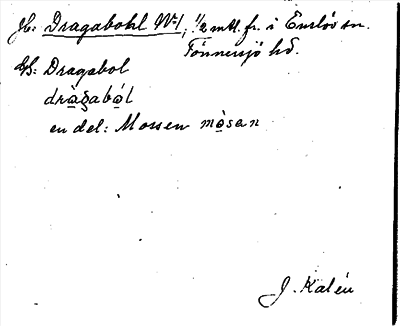 Jb: Dragabohl No 1, 1/2 mtl. fr. i Enslöv sn.
Tönnersjö hd.
GS: Dragabol
dràgaból
en del: Mossen mòsan
J. Kalén